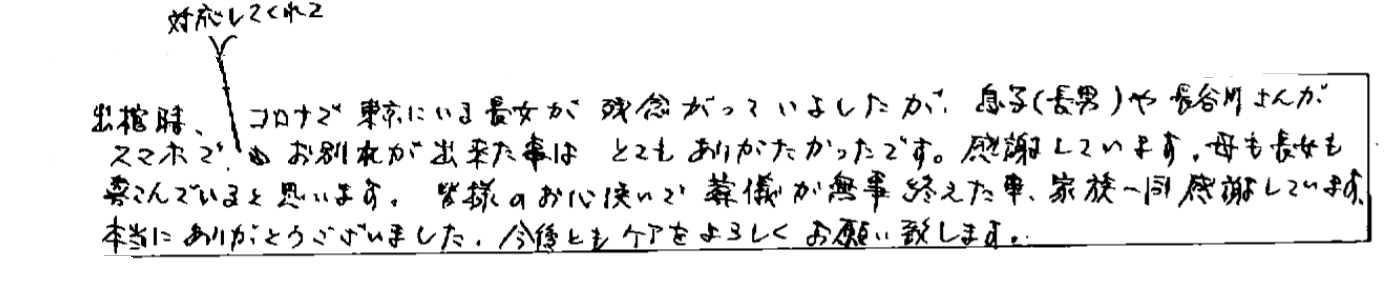 対応してくれて
出棺時、コロナで東京にいる長女が残念がっていましたが、息子(長男)や長谷川さんが
スマホで、お別れが出来た事はとてもありがたかったです。感謝しています。母も長女も
喜こんでいると思います。皆様のお心使いで葬儀が無事終えた事、家族一同感謝しています。
本当にありがとうございました。今後ともケアをよろしくお願い致します。